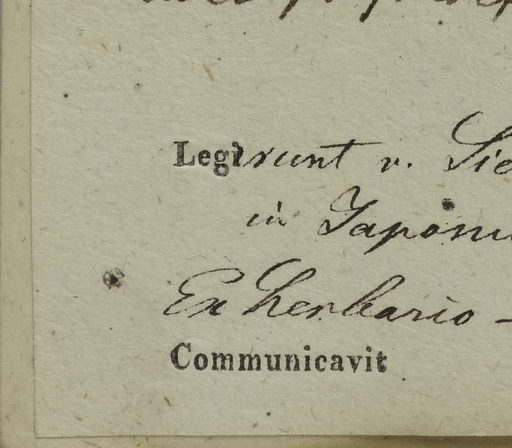 Legerunt v. Sie
in Japoni
Ex herbario -
Communicavit